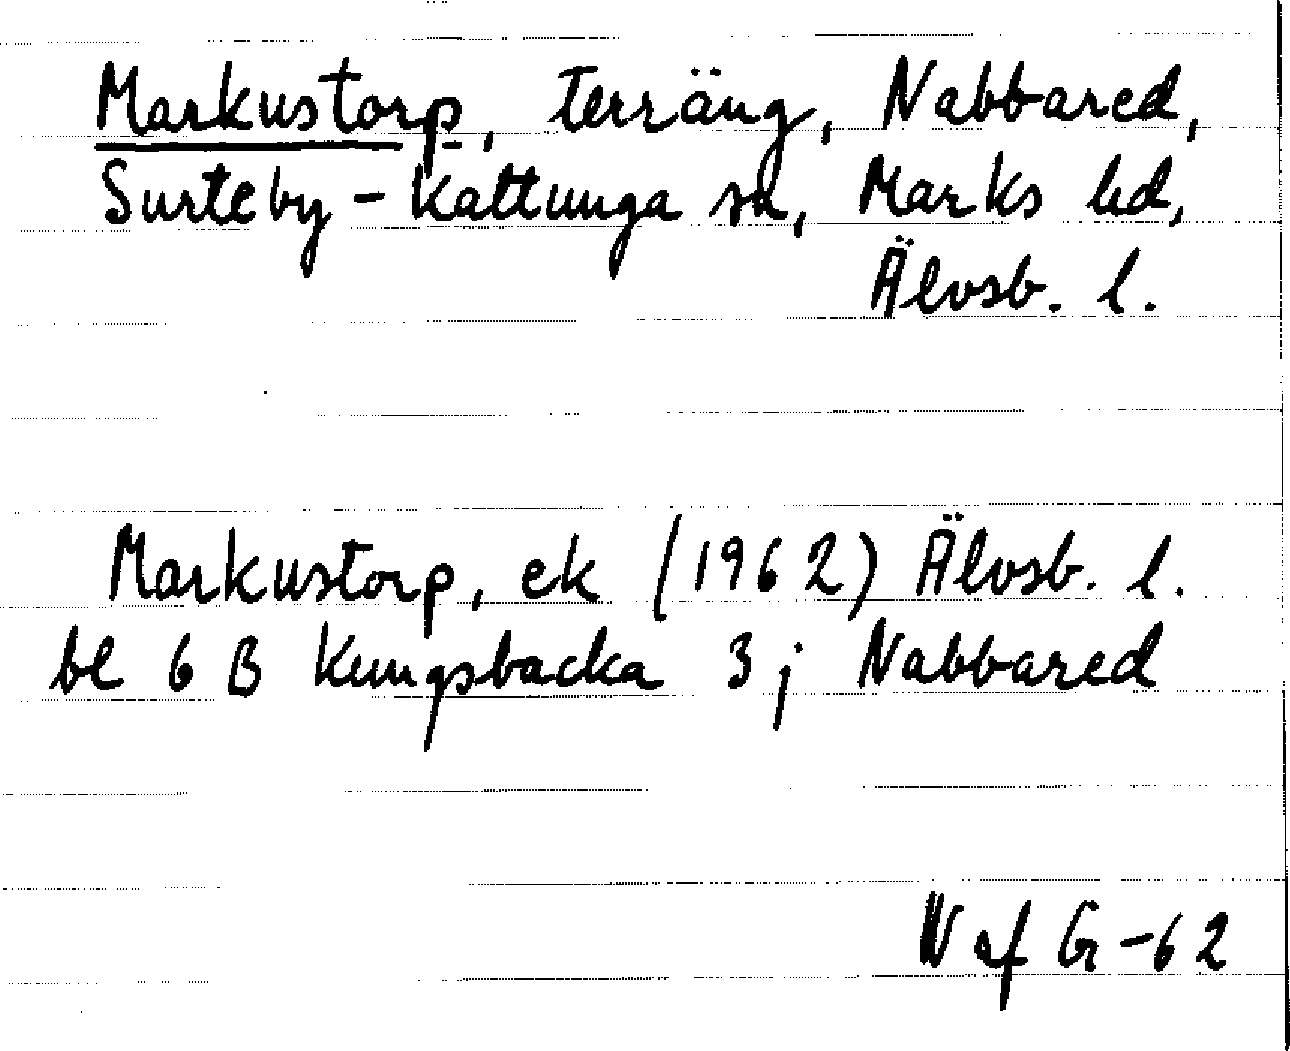 Markustorp, terräng, Nabbared,
Surteby-Kattunga sn, Marks hd,
Älvsb. l.
Markustorp, ek (1962) Älvsb. l.
bl 6 B Kungsbacka 3 j Nabbared
N af G -62